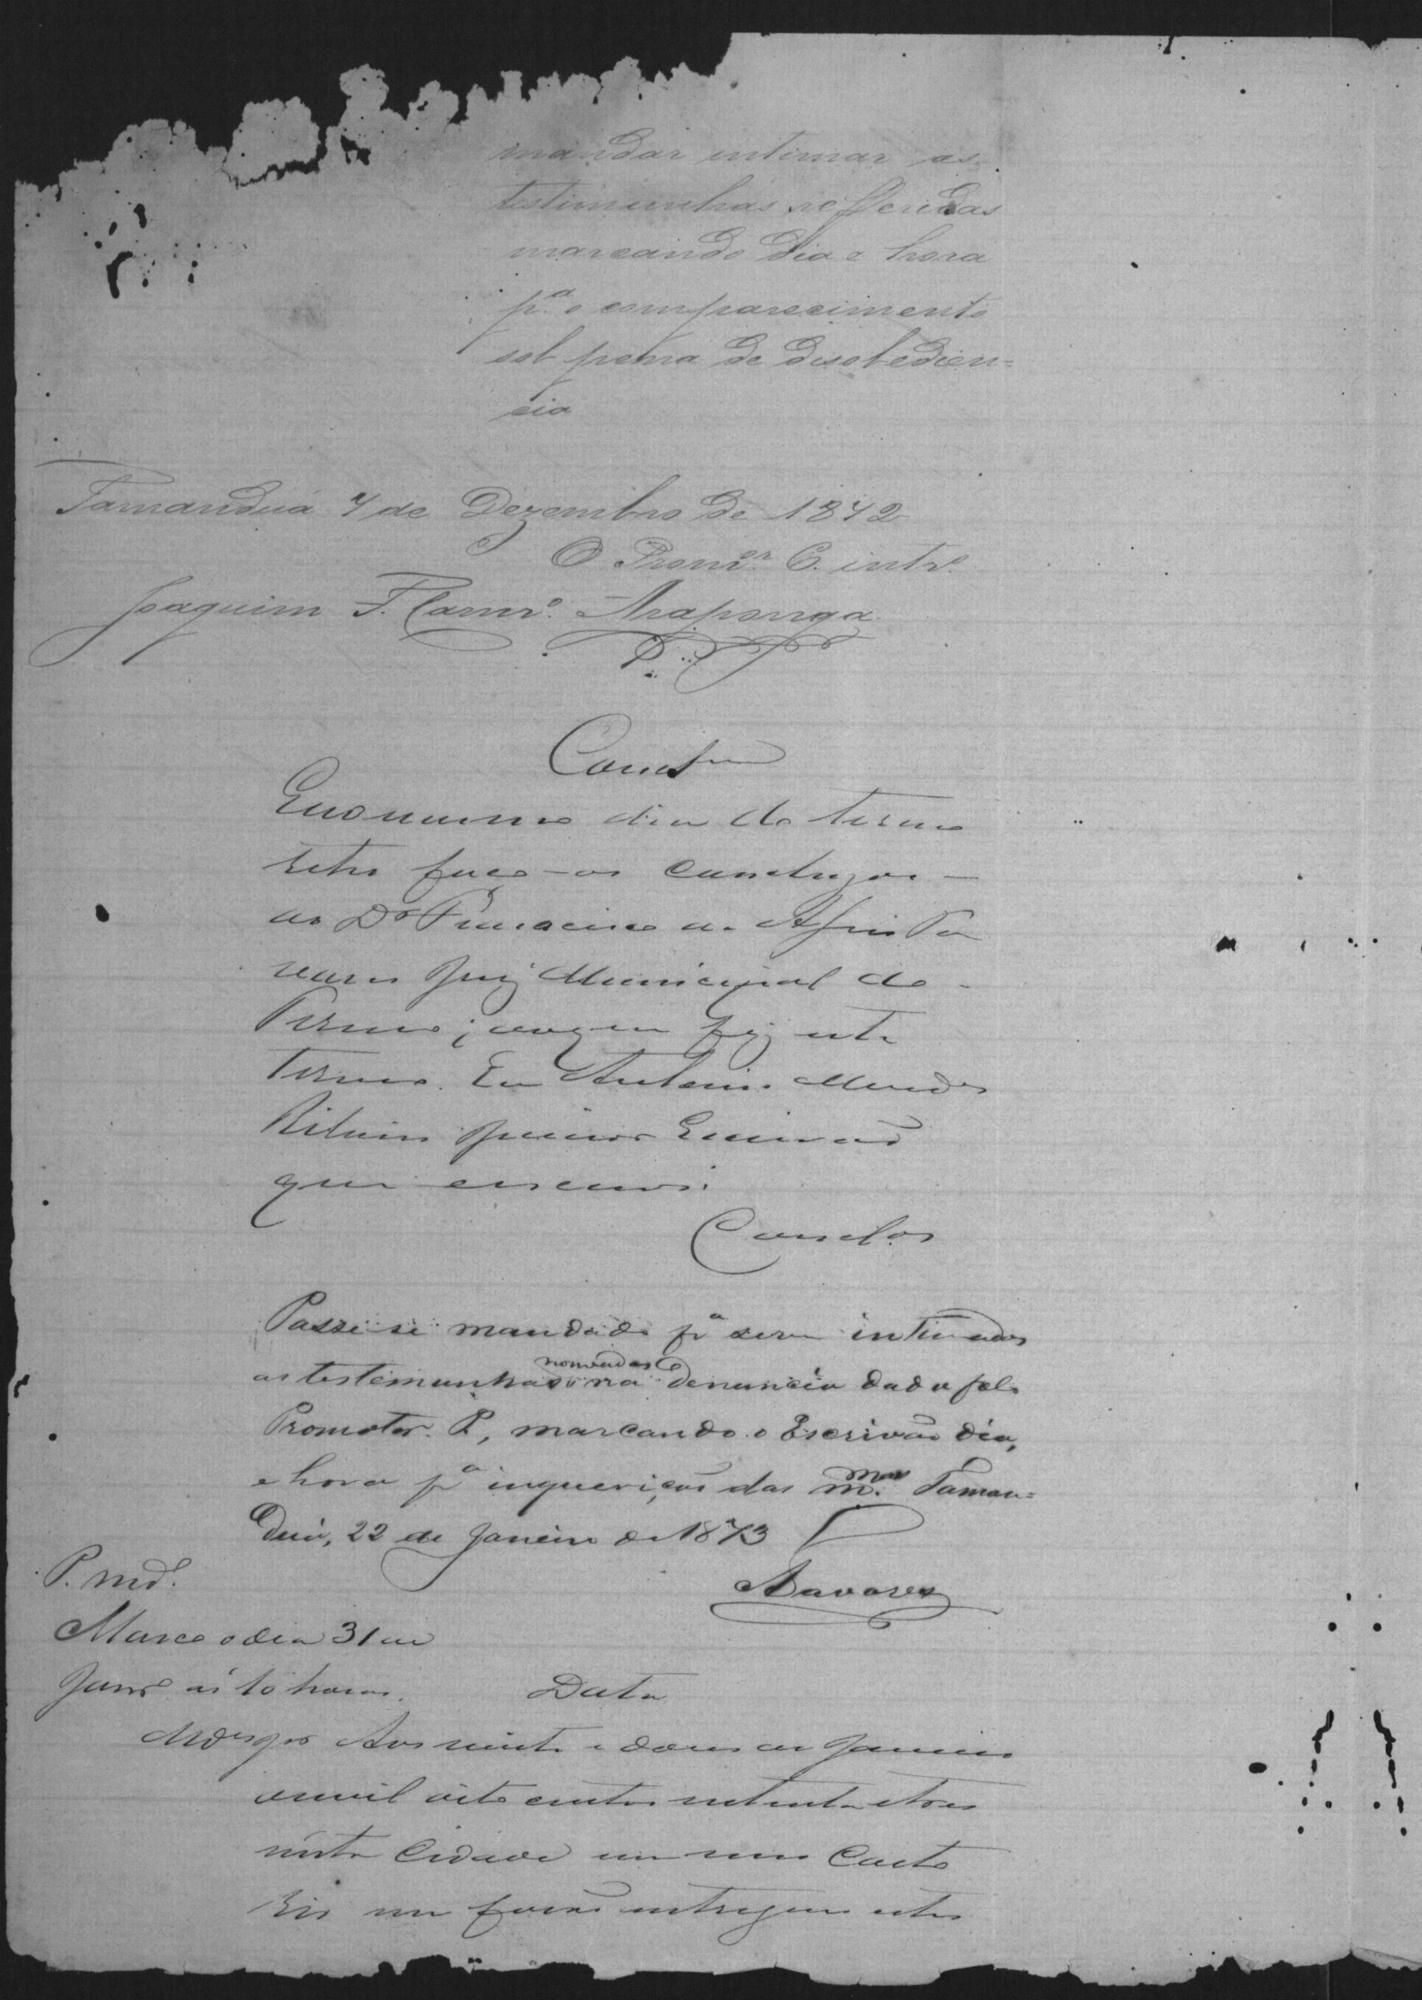 mandar intimar as
testimunhas refferidas
marcando dia e hora
pª o comparecimento
sob pena de disobedien=
cia
Tamanduá 7 de Dezembro de 1872
O Promor. P. intº.
Joaquim F. Carnrº. Araponga
Conclm
Em o mesmo dia do termo
retro faco-os conclusos
ao Dor Francisco de Assis Ta
vares Juiz Municipal do
Termo; do que fiz este
termo. Eu Antonio Mendes
Ribeiro Junior Escrivão
que escrevi.
Conclos
Passe-se mandado pª serem intimadas
as testemunhas nomeadas na denuncia dada pelo
Promotor P., marcando o Escrivão dia,
e hora pª inquerição das mmas. Taman=
duá, 22 de Janeiro de 1873
Tavares
P. mdº.
Marco o dia 31 de
Janrº ás 10 horas.
Data
Aos vinte e dous de Janeiro
de mil oito centos setenta e tres
nesta Cidade em meu Carto
rio me forão entregues estes